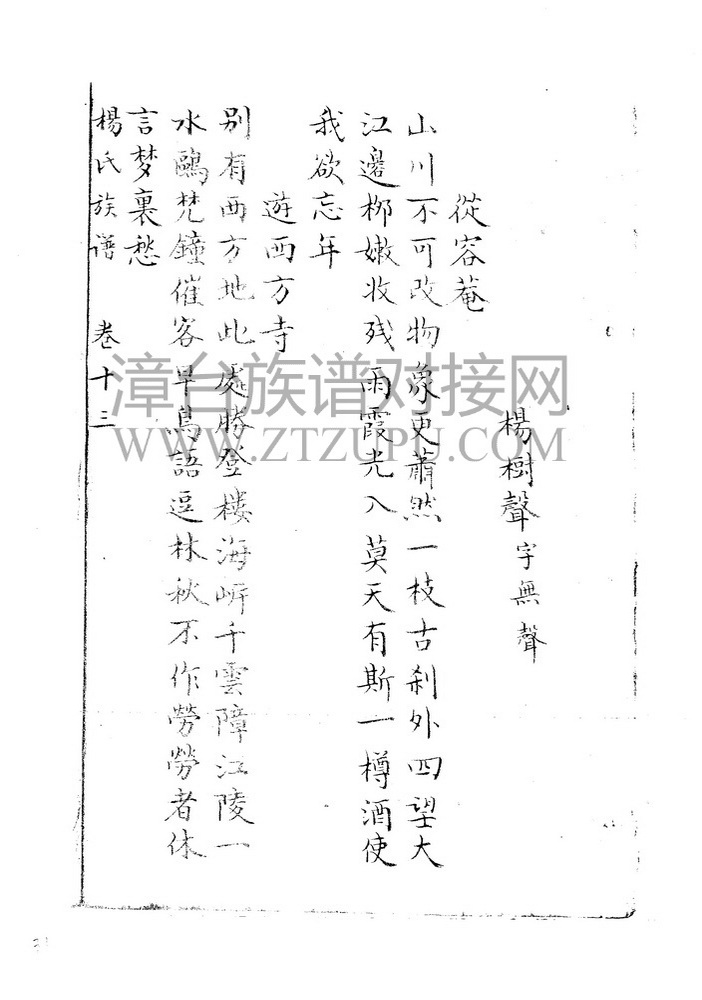 楊樹聲字無聲
從容菴
山川不可改物象更蕭然一枝古刹外四望大
江邊栁嫩收残雨霞光入莫天有斯一樽酒使
我欲忘年
遊西方寺
别有西方地此處勝登楼海㟁千雲障江陵一
水鷗梵鐘催客早鳥語逗林秋不作勞勞者休
言梦裏愁
楊氏族谱 卷十三
漳台族谱对接网
WWW.ZTZUPU.COM